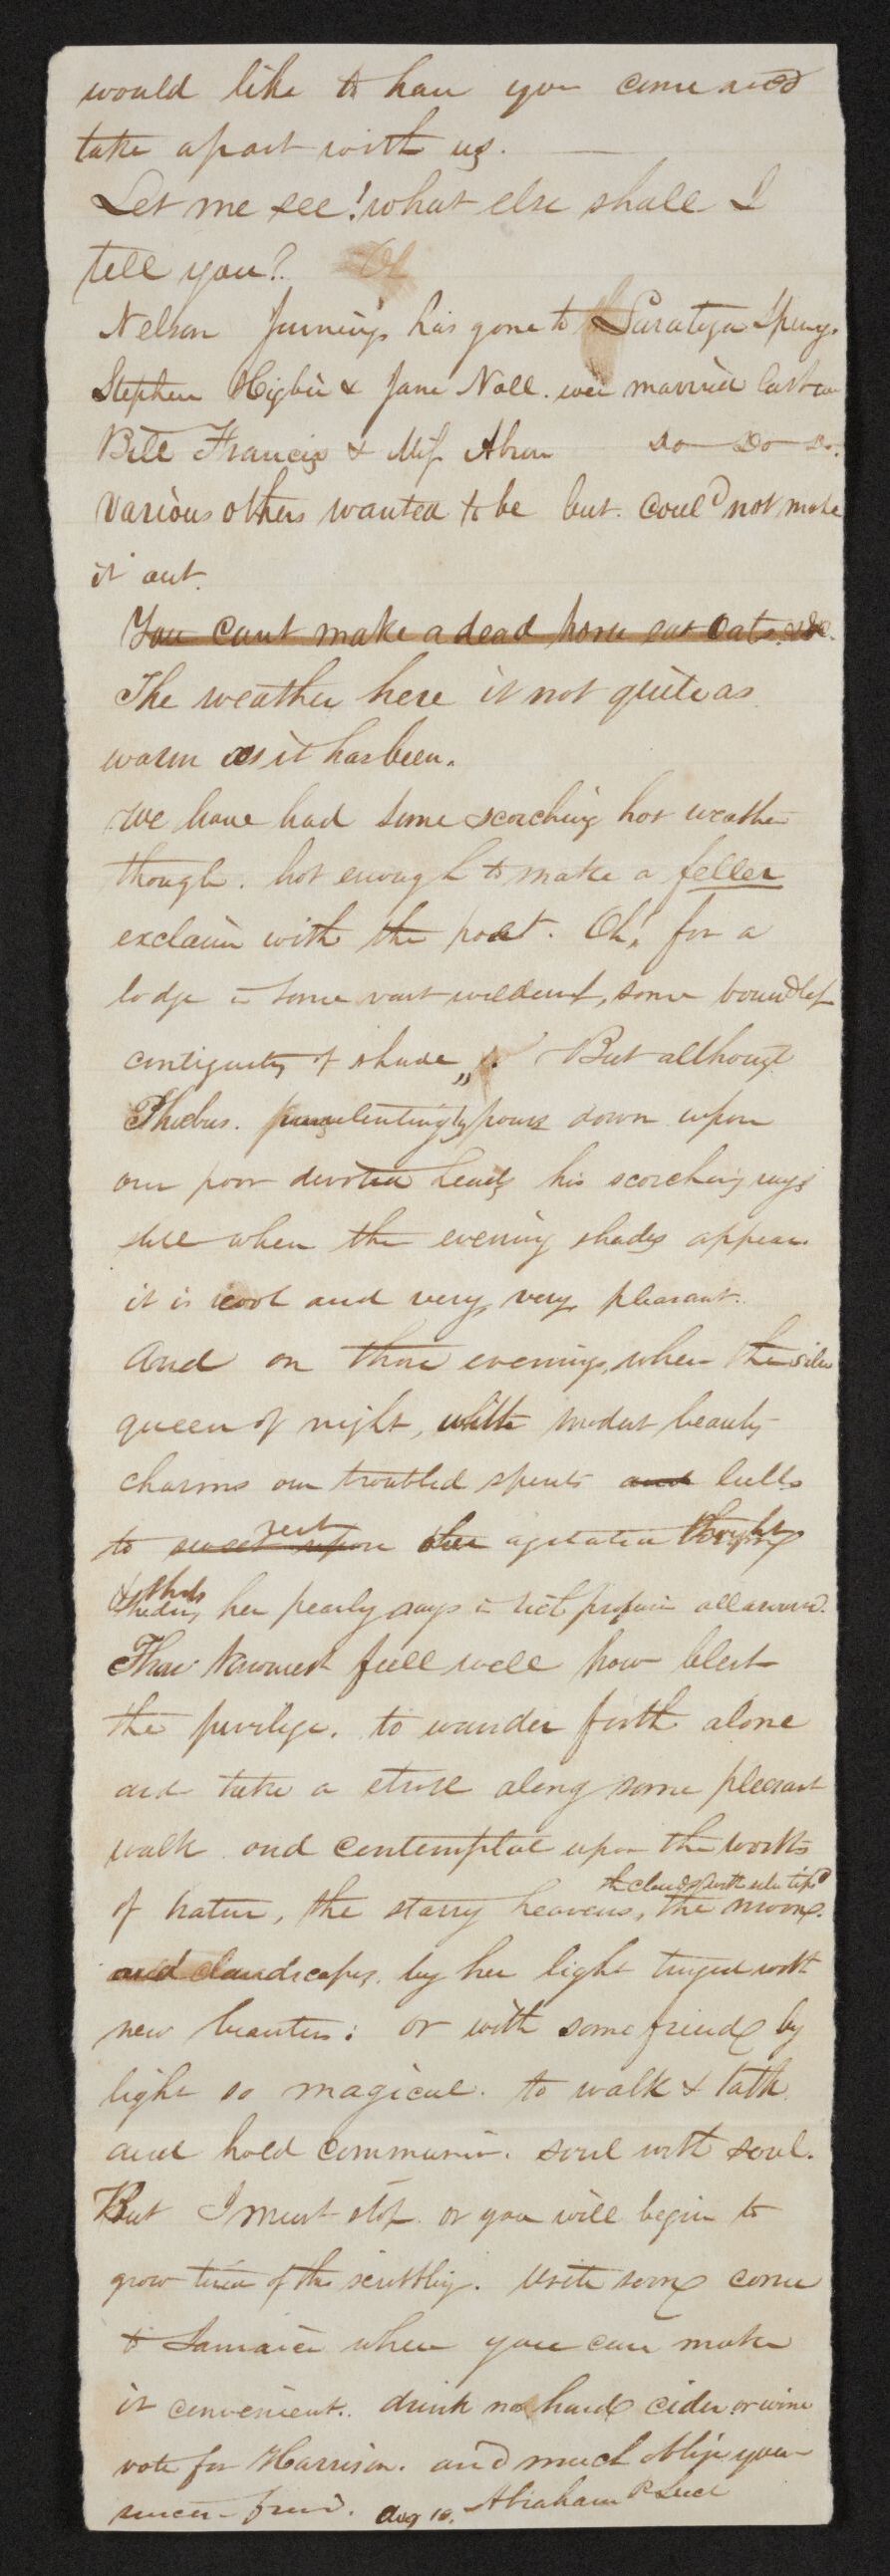 would like to have you come and
take apart with us.
Let me see! what else shall I
tell you?
Nelson Jennings has gone to Saratoga Springs
Stephen Higbie & Jane Nall. were married last
Bill Francis & Miss Abron Do Do Do.
various others wanted to be but. could not make
it out.
You cant make a dead horse eat oats. &c.
The weather here is not quite as
warm as it has been.
we have had some scorching hot weather
though. hot enough to make a feller
exclaim with the poet. Oh! for a
lodge in some vast wilderness, some boundless
contiguity of shade„. But although
Phoebus. pours down upon
our poor devoted heads his scorching rays
still when the evening shades appear
it is cool and very, very pleasant.
And on those evenings, when the silver
queen of night, with modest beauty
charms our troubled spirits and lulls
to sweet repose rest the agitated thoughts
& sheds her pearly rays in rich profusion all around.
Thou knowest full well how blest
the privilige. to wander forth alone
and take a stroll along some pleasant
walk and contemplate upon the works
of nature, the starry heavens, the clouds with tip'd the moon.
and landscapes. by her light tinged with
new beauties: or with some friend by
light so magical. to walk & talk
and hold communion. soul with soul.
But I must stop or you will begin to
grow tired of this scribbling. Write soon come
to Jamaica when you can make
it convenient.. drink no hard cider or wine
vote for Harrison. and much oblige your
sincere friend. Aug 10. Abraham P Luci